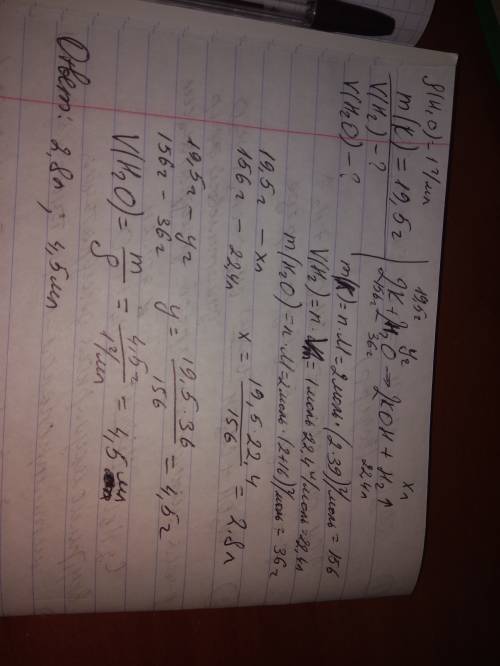 ρ(H₂O) = 1 г/мл
m(K) = 19,5г
V(H₂) - ?
V(H₂O) - ?
19,5г yг xл
2K + 2H₂O → 2KOH + H₂↑
156г 36г 22,4л
m(K) = n·M = 2моль·(2·39)г/моль = 156
V(H₂) = n·Vm = 1моль·22,4 л/моль = 22,4л
m(H₂O) = n·M = 2моль·(2+16)г/моль = 36г
19,5г – xл
156г – 22,4л
x = 19,5·22,4 / 156 = 2.8л
19,5г – yг
156г – 36г
y = 19,5·36 / 156 = 4,5г
V(H₂O) = m / ρ = 4,5г / 1г/мл = 4,5мл
Ответ: 2,8л, 4,5мл